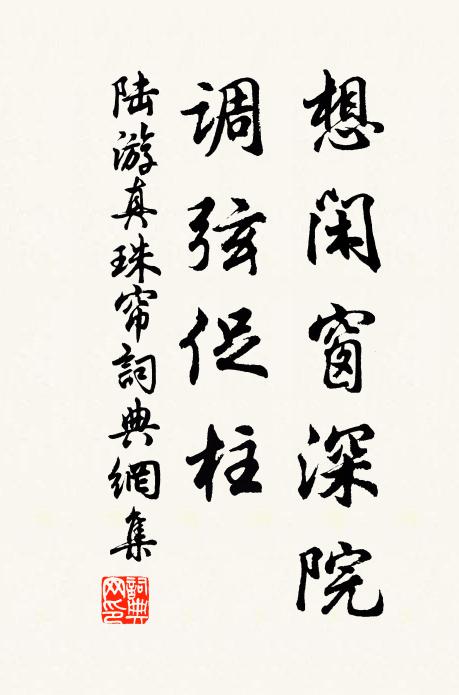 想闲窗深院
调弦促柱
陆游真珠帘詞典網集
詞典网印